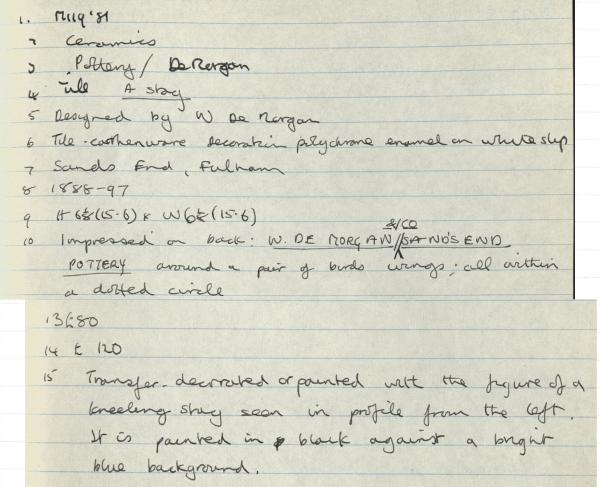 1. M119 '81
2 Ceramics
3 Pottery / De Morgan
4 Tile A stag
5 Designed by W De Morgan
6 Tile - earthenware decoration polychrome enamel on white slip
7 Sands End, Fulham
8 1888-97
9 H 6⅛ (15.6) x W 6⅛ (15.6)
&/CO
10 Impressed on back: W. DE MORGAN // SAND'S END
POTTERY around a pair of birds wings; all within
a dotted circle
13 £80
14 £ 120
15 Transfer-decorated or painted with the figure of a
kneeling stag seen in profile from the left.
It is painted in black against a bright
blue background.